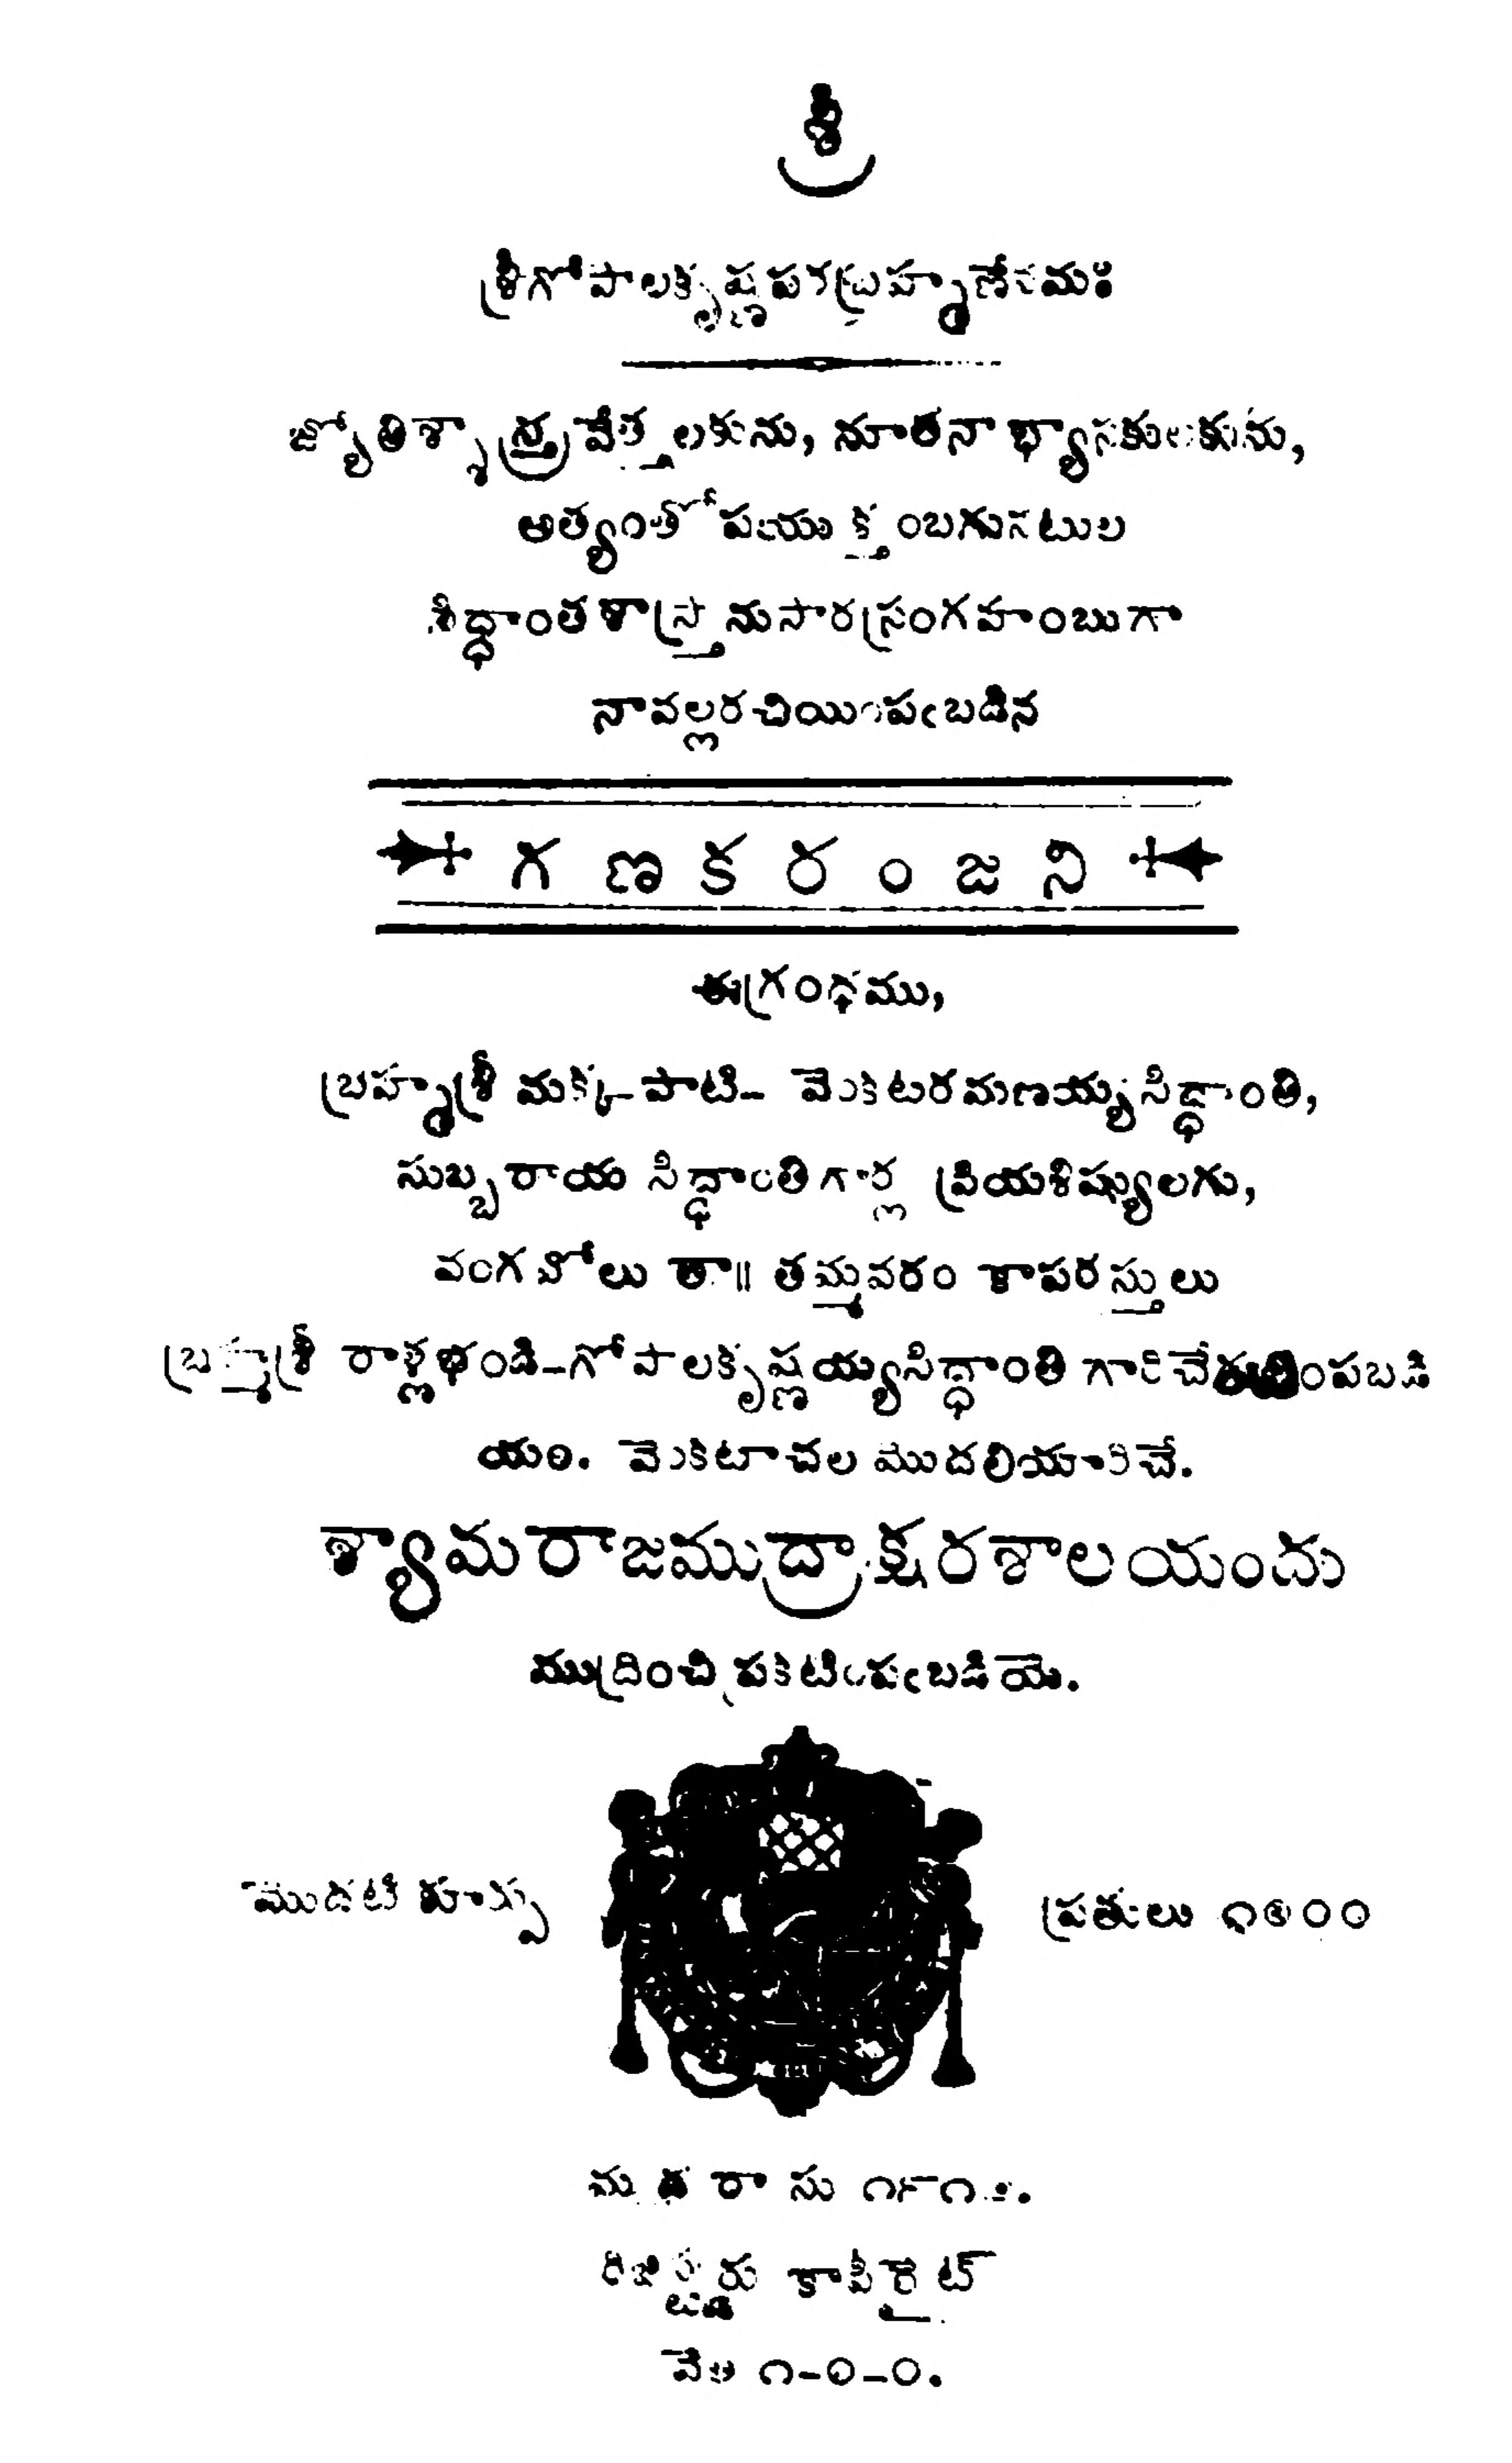 శ్రీ
శ్రీగోపాలకృష్ణపరబ్రహ్మణేనమః
జ్యోతిశ్శాస్త్రవేత్తలకును, నూతనాభ్యాసకులకును,
అత్యంతోపయుక్తంబగునటుల
సిద్ధాంతశాస్త్రనుసారసంగ్రహంబుగా
నావల్లరచియింపఁబడిన
గణకరంజని
ఈగ్రంధము,
బ్రహ్మశ్రీ మక్కపాటి- వెంకటరమణయ్యసిద్ధాంతి,
సుబ్బరాయ సిద్ధాంతిగార్ల ప్రియశిష్యులగు,
వంగవోలు తా॥ తమ్మవరం కాపరస్తులు
బ్రహ్మశ్రీ రాళ్లభండి-గోపాలకృష్ణయ్యసిద్ధాంతి గారిచే
యం. వెంకటాచల మొదలియారిచే.
శ్యామరాజముద్రాక్షరశాలయందు
ముద్రించి ప్రకటింపఁబడియె.
మొదటి కూర్పు
ప్రతులు ౧౦౦౦
మదరాసు
రిజిస్టర్డు కాపీరైట్
వెల ౧-౦-౦.